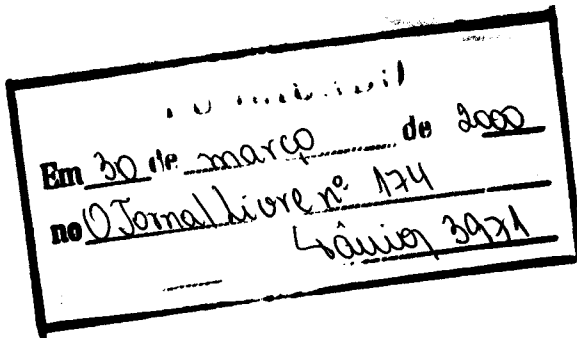 Em 30 de março de 2000
no O Jornal Livre nº 174
3971